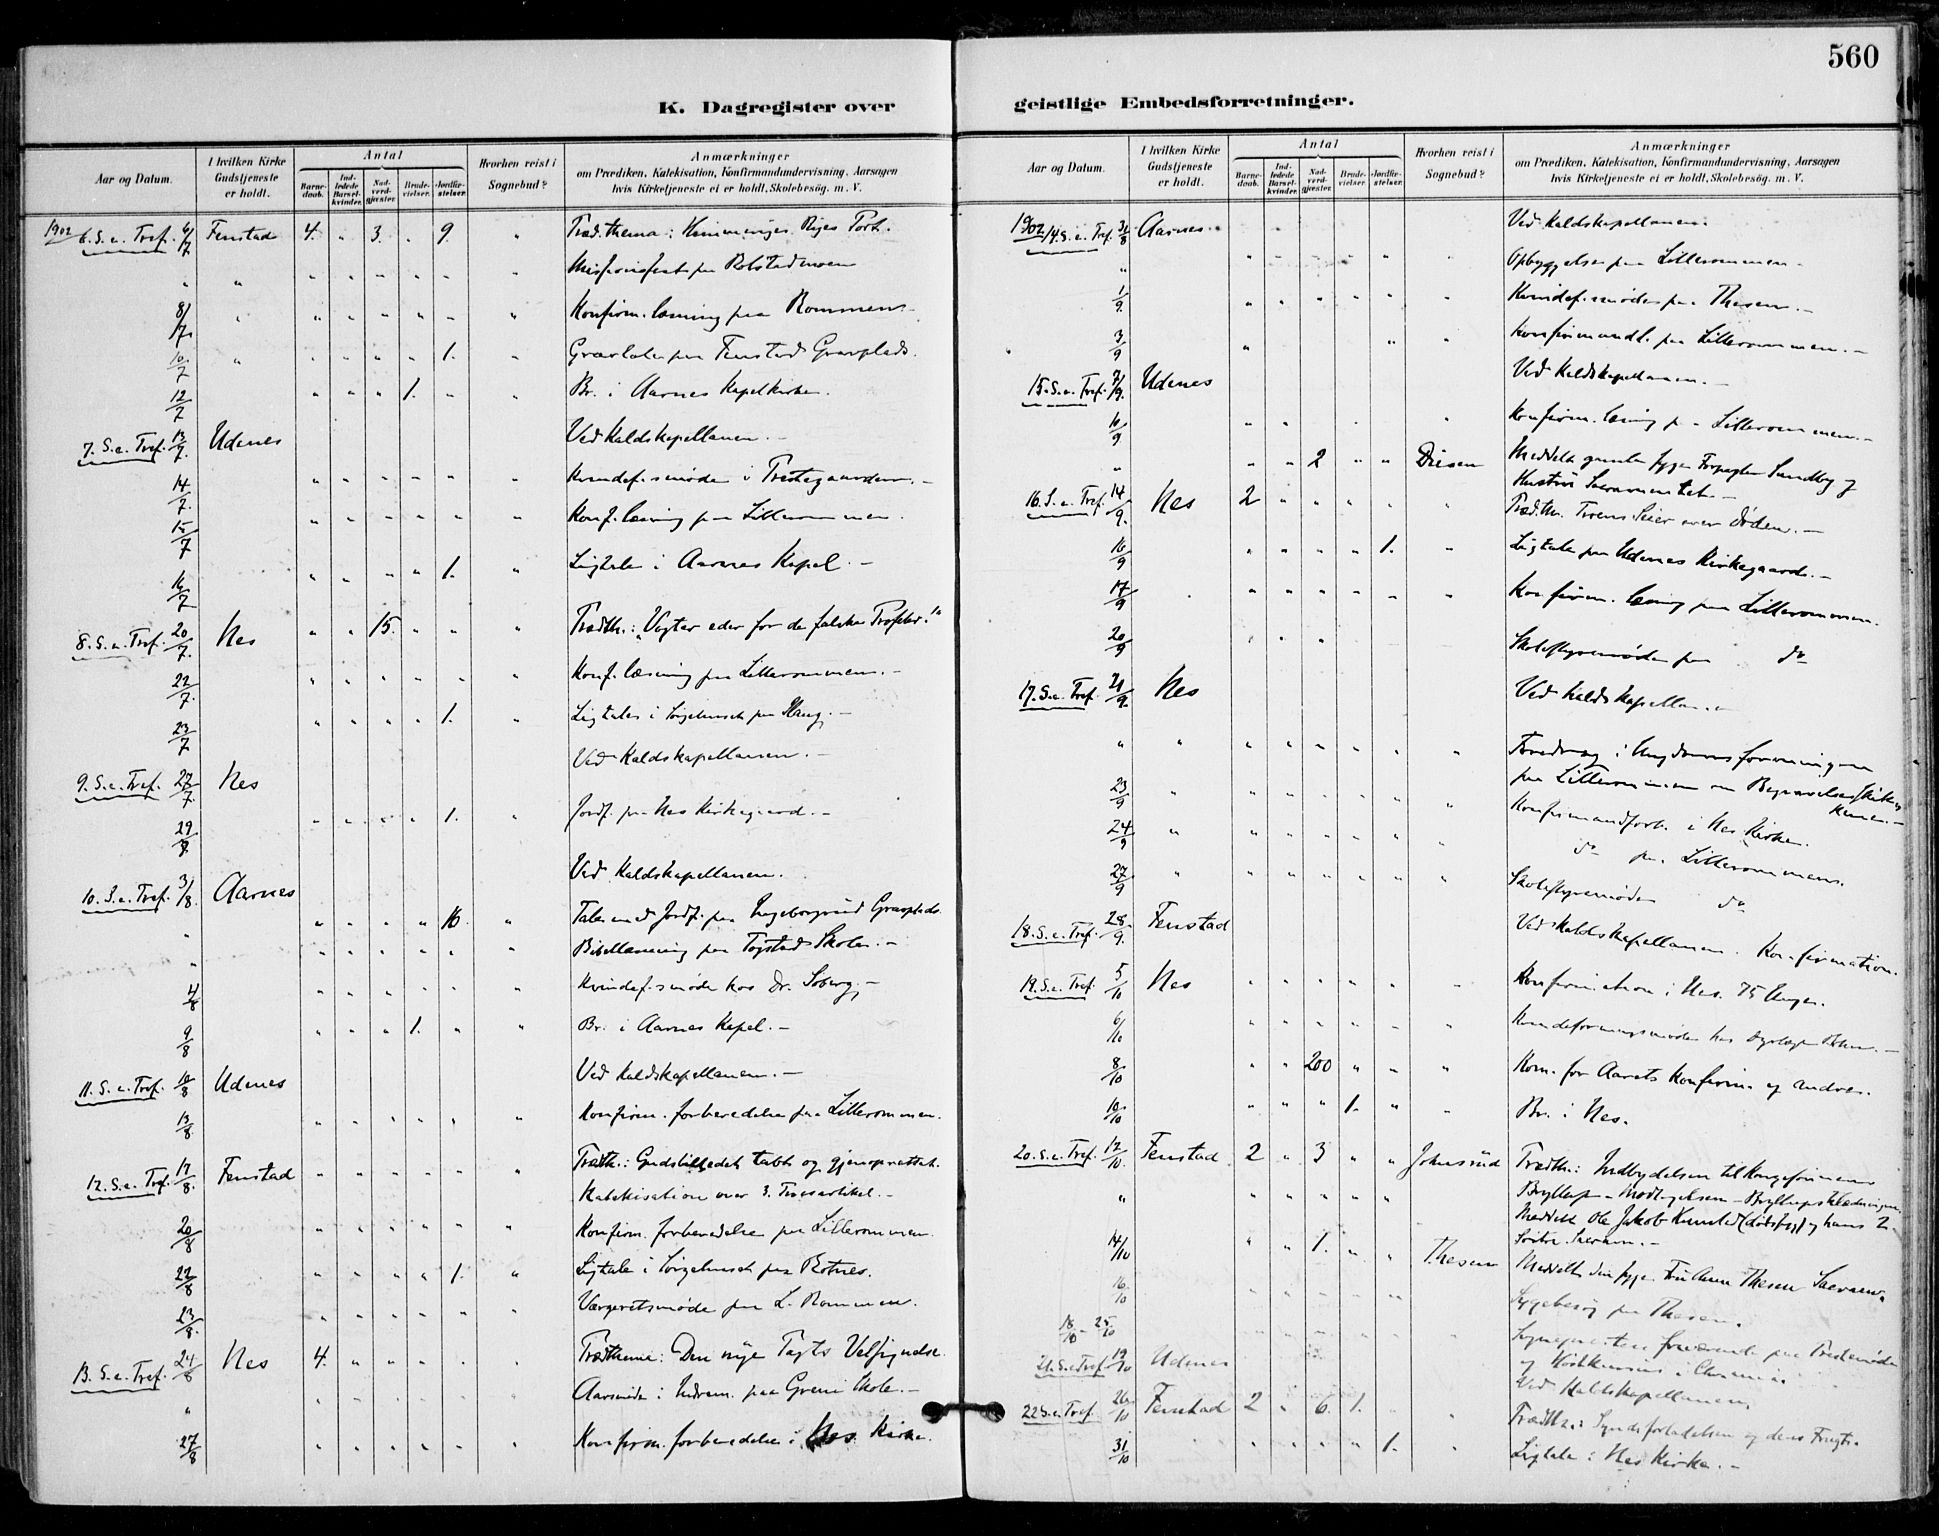 560
K. Dagregister over
geistlige Embedsforretninger.
Aar og Datum.
I hvilken Kirke
Gudstjeneste
er holdt.
Antal
Barne-
daab.
Ind-
ledede
Barsel-
kvinder.
Nad-
verd-
gjæster.
Brude-
vielser.
Jordfæ-
stelser.
Hvorhen reist i
Sognebud?
Anmærkninger
om Prædiken, Katekisation, Konfirmandundervisning, Aarsagen
hvis Kirketjeneste ei er holdt, Skolebesög. m. V.
1902 6. S. e. Tref. 6/7 Fenstad 4. " 3. " 9. " Præd.thema: Himmeriges Riges Port.
" " " " " " " " Missionsfest paa Rolstadmoen
8/7 " " " " " " " Konfirm. læsning paa Rommen
10/7 " " " " " 1. " Gravtale paa Fenstad Gravplads.
12/7 " " " 1. " " Br. i Aarnes Kapelkirke.
7. S. e. Tref. 13/7. Udenes Ved Kaldskapellanen. –
14/7. " " " " " " Kvindef.smöde i Prestegaarden. –
15/7 " " " " " " Konf. læsning paa Lillerommen.
16/7 " " " " 1. " Ligtale i Aarnes Kapel. –
8. S. e. Tref. 20/7. Nes " " 15. " " " Prædth.: "Vogter eder for de falske Profeter!"
22/7. " " " " " " Konf. læsning paa Lillerommen. –
23/7 " " " " 1. " Ligtale i Sörgehuset paa Haug. –
9. S. e. Tref. 27/7. Nes Ved Kaldskapellanen. –
29/7. " " " " 1. " Jordf. paa Nes Kirkegaard. –
10. S. e. Tref. 3/8. Aarnes Ved Kaldskapellanen.
" " " " " 10. " Tale med Jordf. paa Ingeborgrud Gravplads.
" " " " " " " Bibellæsning paa Togstad Skole. –
4/8 " " " " " " Kvindef.smöde hos Dr. Soberg. –
9/8 " " " 1. " " Br. i Aarnes Kapel. –
11. S. e. Tref. 10/8 Udenes Ved Kaldskapellanen. –
13/8. " " " " " " Konfirm. forberedelse paa Lillerommen.
12. S. e. Tref. 17/8. Fenstad " " " " " " Prædth.: Gudsbilledet tabt og gjenoprettet.
Katekisation over 3. Trosartikel. –
20/8 " " " " " " Konfirm. forberedelse paa Lillerommen.
22/8 " " " " 1. " Ligtale i Sörgehuset paa Botnes.
23/8. " " " " " " Værgeretsmöde paa L. Rommen.
13. S. e. Tref. 24/8 Nes 4. " " " " " Prædthema: Den nye Pagts Velsignelse.
" " " " " " " Aarsmöde i Indrem. paa Greni Skole. –
27/8 " " " " " " Konfirm. forberedelse i Nes Kirke.
Aar og Datum.
I hvilken Kirke
Gudstjeneste
er holdt.
Antal
Barne-
daab.
Ind-
ledede
Barsel-
kvinder.
Nad-
verd-
gjæster.
Brude-
vielser.
Jordfæ-
stelser.
Hvorhen reist i
Sognebud?
Anmærkninger
om Prædiken, Katekisation, Konfirmandundervisning, Aarsagen
hvis Kirketjeneste ei er holdt, Skolebesög. m. V.
1902 14. S. e. Tref. 31/8 Aarnes. Ved Kaldskapellanen.
" " " " " " " Opbyggelse paa Lillerommen. –
1/9 " " " " " " Kvindef.smöde paa Thesen. –
3/9 " " " " Konfirmandl. paa Lillerommen. –
15. S. e. Tref. 7/9. Udenes Ved Kaldskapellanen. –
10/9 " " " " Konfirm. læsning p. Lillerommen. –
" " " 2 " " Diesen Meddelt gamle syge Forpagter Sundby og
Hustru Sacramentet. –
16. S. e. Tref. 14/9. Nes 2 " " " " " Præd.th. Troens Seier over Döden. –
16/9 " " " " 1. " Ligtale paa Udenes Kirkegaard. –
17/9 " " " " " " Konfirm. læsning paa Lillerommen.
20/9 " " " Skolestyremöde paa do
17. S. e. Tref. 21/9. Nes Ved Kaldskapellanen. –
" " " " " " " " Foredrag i Ungdomsforeningen
paa Lillerommen om Begravelsesskikkene. –
23/9 " " " " " " " Konfirmandforb. i Nes Kirke.
24/9 " " " " " " " do paa Lillerommen.
27/9 " " " " " " " Skolestyremöde do
18. S. e. Tref. 28/9. Fenstad Ved Kaldskapellanen. Konfirmation.
19. S. e. Tref. 5/10 Nes " " " " " " Konfirmation i Nes. 75 Unge.
6/10 " " " " " " Kvindeforeningsmöde hos
8/10 " " 200 " " " Kom. for Aarets Konfirm. og andre.
10/10 " " " 1. " " Br. i Nes.
20. S. e. Tref. 12/10. Fenstad 2 " 3 " " Johnsrud Prædth.: Indbydelsen til Kongesönnens
" " " " " " Bryllup – Modtagelsen – Bryllupsklædningen.
Meddelt Ole Jakob og hans 2
Söstre Sacram. –
14/10 " " 1. " " Thesen Meddelt den syge Fru Anna Thesen Sacram.
16/10 " " " " " Sygebesög paa Thesen.
18/10 – 25/10 " " " " " " Sognepresten fraværende paa Prestemöde
og i Chra.
21. S. e. Tref. 19/10 Udenes Ved Kaldskapellanen.
22 S. e. Tref. 26/10 Fenstad 2 " 6. 1. " " Prædth.: Syndsforladelsen og dens Frugt. –
31/10 " " " " 1. " Ligtale i Nes Kirke. –